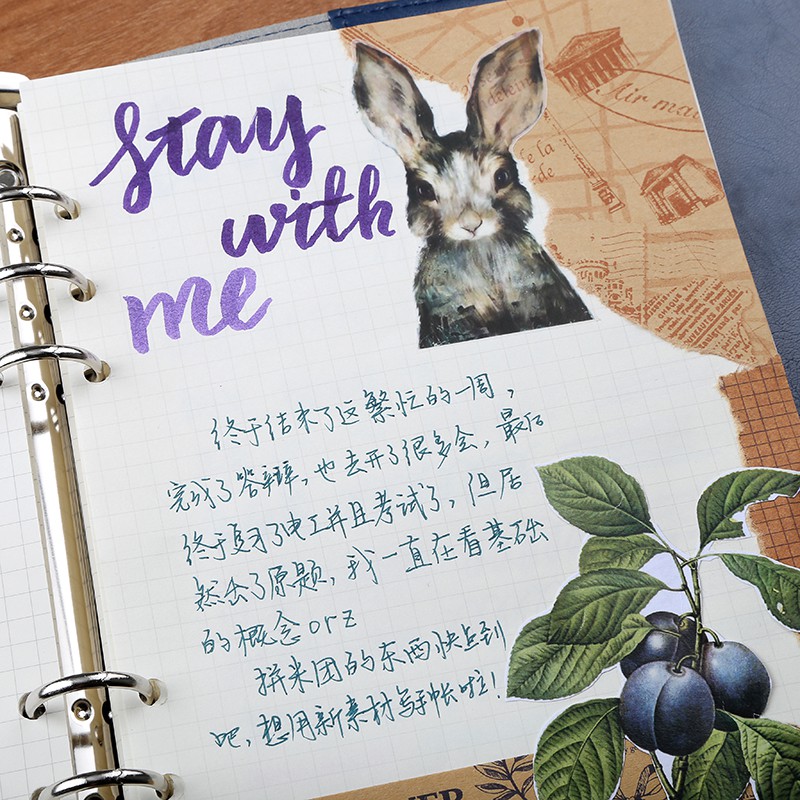 stay
with
me
Air mai
de la
终于结束了这繁忙的一周，
完成了答辩，也去开了很多会，最后
终于复习了电工并且考试了，但居
然出了原题，我一直在看基础
的概念orz
拼米团的东西快点到
吧，想用新素材写手帐啦！